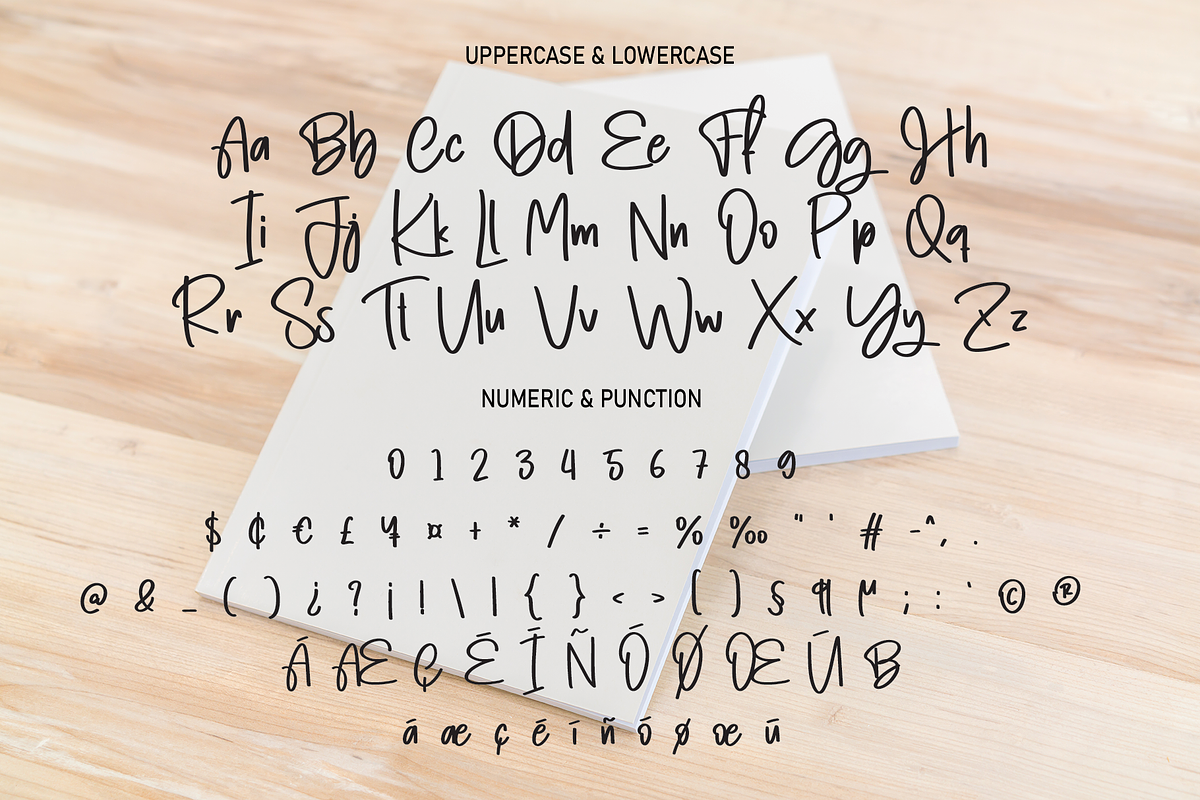 UPPERCASE & LOWERCASE
Aa Bb Cc Dd Ee Ff Gg Hh
Ii Jj Kk Ll Mm Nn Oo Pp Qq
Rr Ss Tt Uu Vv Ww Xx Yy Zz
NUMERIC & PUNCTION
0 1 2 3 4 5 6 7 8 9
$ ₵ € £ ¥ ¤ + * / ÷ = % ‰ " ' # - ^ , .
@ & _ ( ) ¿ ? ¡ ! \ | { } < > [ ] § ¶ µ ; : ` © ®
Á Æ Ç É Ī Ñ Ó Ø Œ Ú B
á æ ç é ī ñ ó ø œ ú